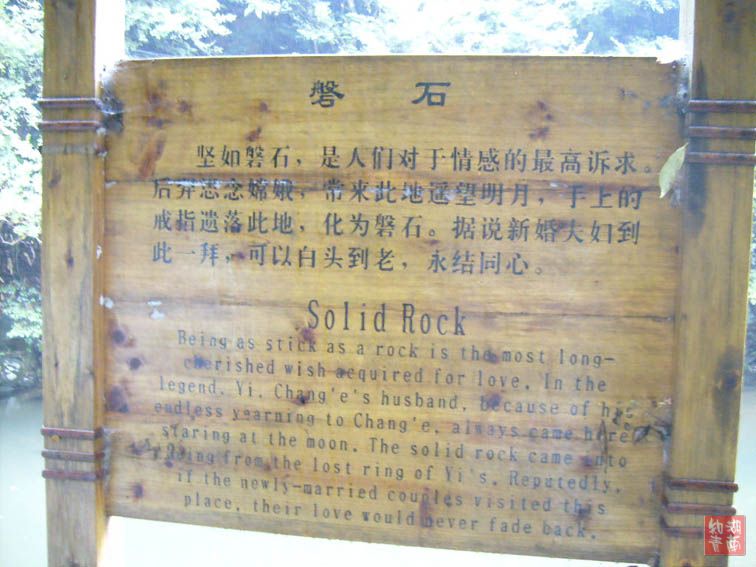 磐 石
坚如磐石，是人们对于情感的最高诉求。
后羿恋念嫦娥，常来此地遥望明月，手上的
戒指遗落此地，化为磐石。据说新婚夫妇到
此一拜，可以白头到老，永结同心。
Solid Rock
Being as stick as a rock is the most long-
cherished wish acquired for love. In the
legend, Yi, Chang'e's husband, because of his
endless yearning to Chang'e, always came here
staring at the moon. The solid rock came into
being from the lost ring of Yi's. Reputedly,
if the newly-married couples visited this
place, their love would never fade back.